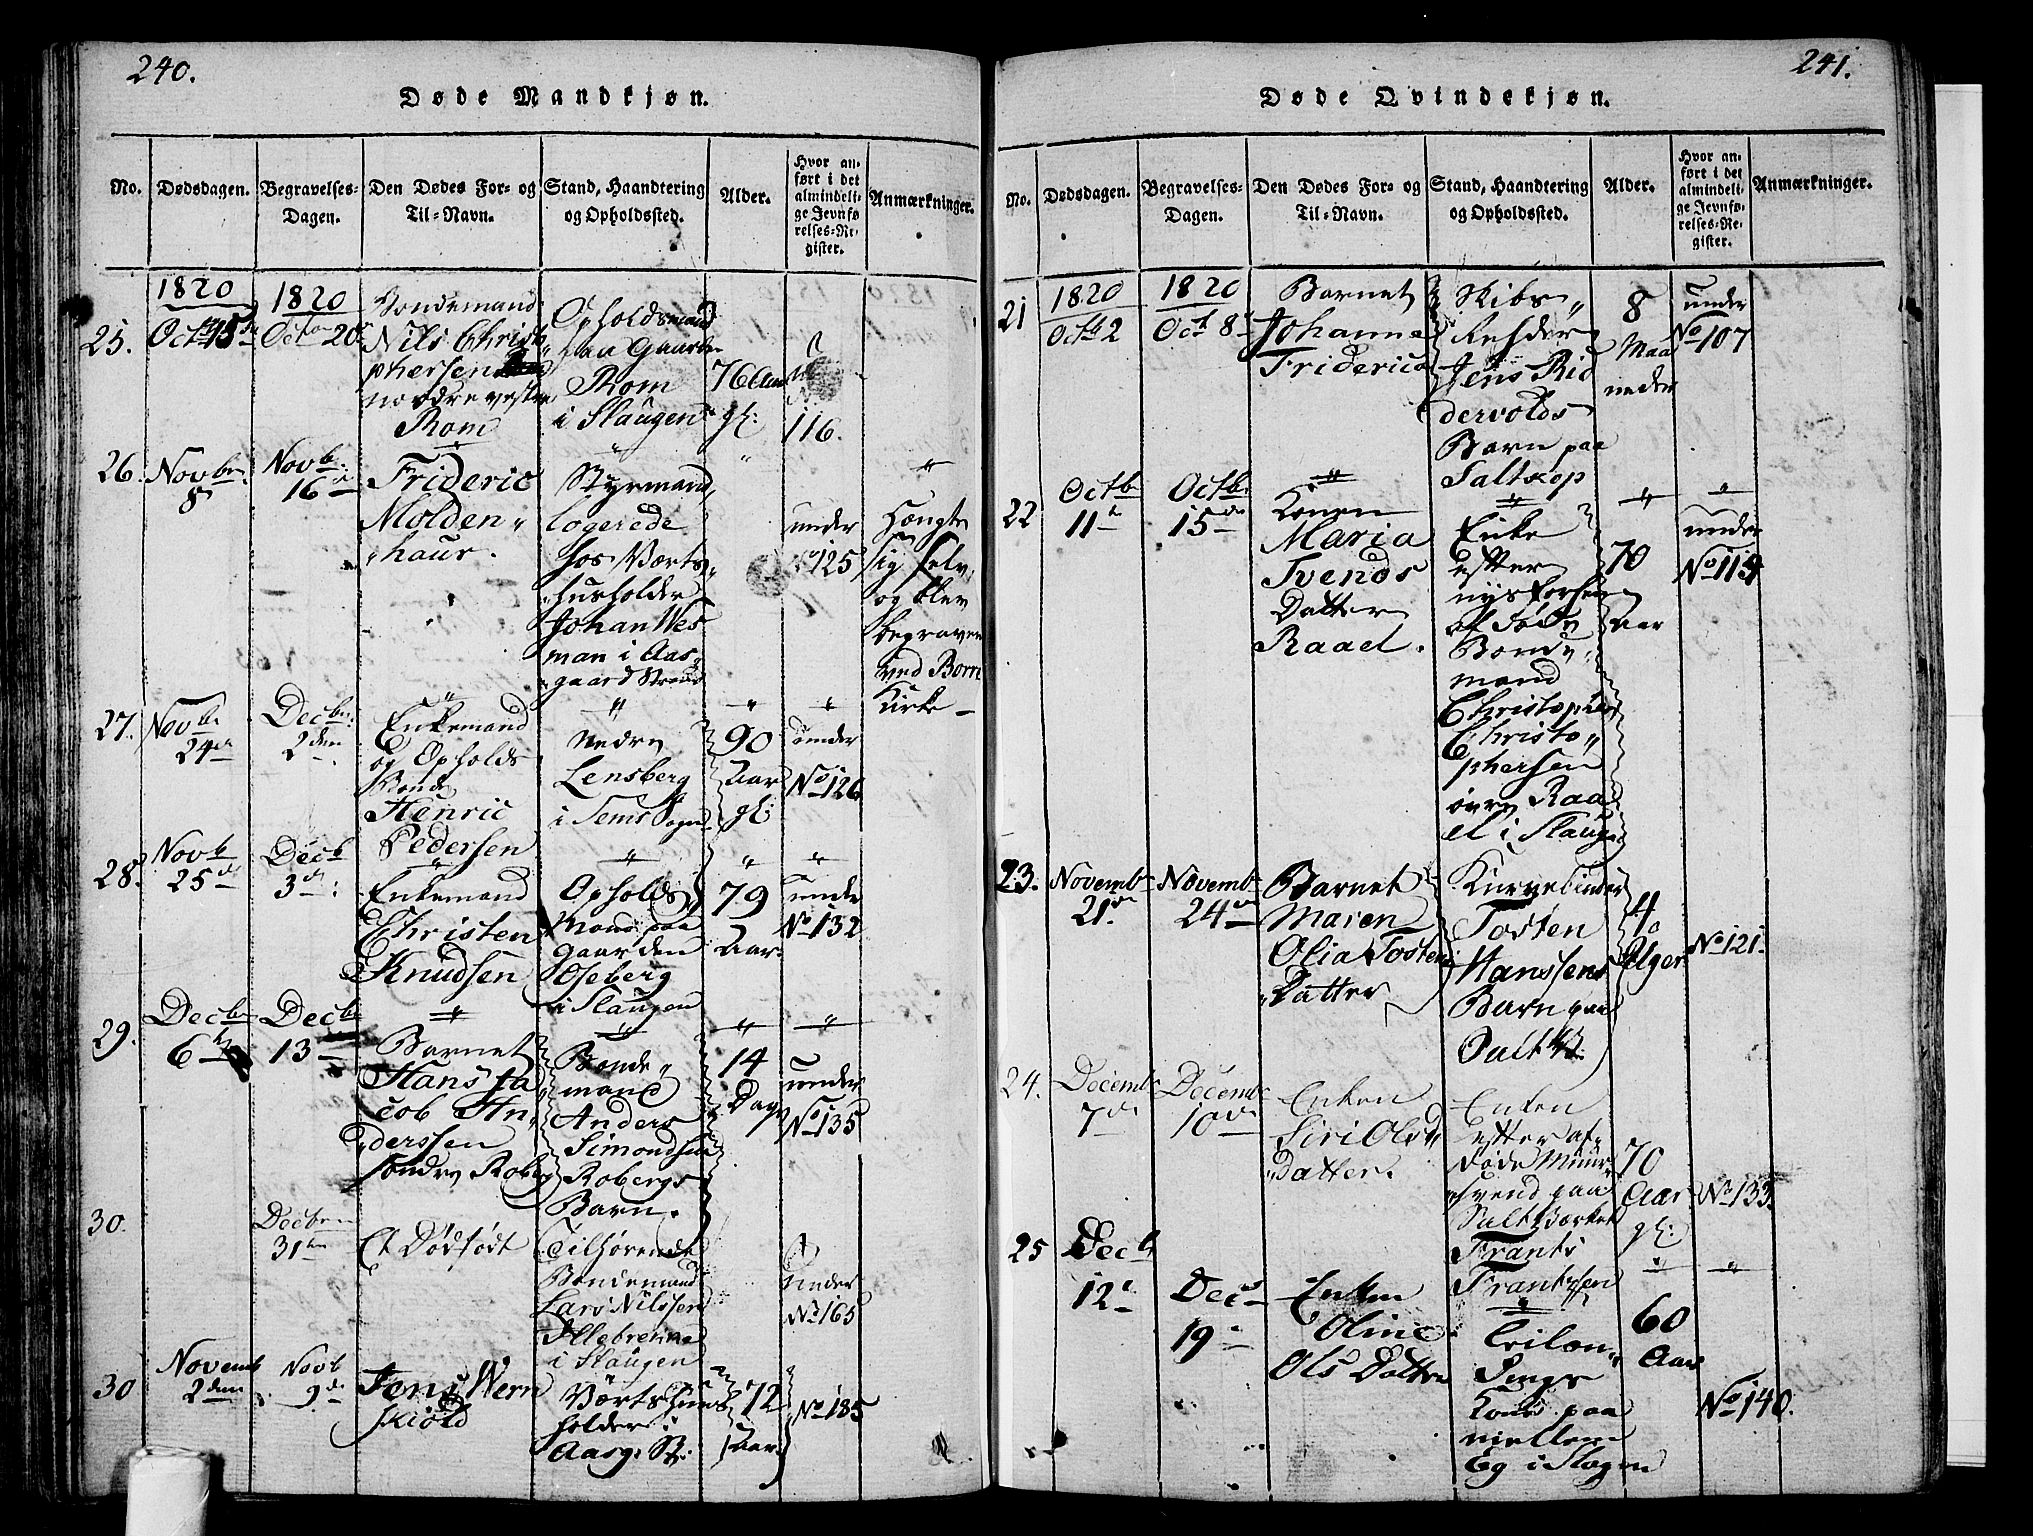 240.
Døde Mandkjøn.
No.
Dødsdagen.
Begravelses-
Dagen.
Den Dødes For- og
Til-Navn.
Stand, Haandtering
og Opholdssted.
Alder.
Hvor an-
ført i det
almindeli-
ge Jevnfø
relses-Re-
gister.
Anmærkninger.
25.
1820
Oct 15
1820
Oct 20
Bondemand
Nils Christo
phersen
nordre vestre
Rom
Opholdsmand
paa Gaarden
Rom
i Slaugen
76 Aar
gl:
116.
26.
Novbr
8
Novb:
16
Frideric
Molden
haur.
Styrmand
logerede
hos Værts
husholder
Johan Wes
man i Aas
gaardstrand
under
125
Hængte
sig selv
og blev
begraven
ved Borre
Kirke
27.
Novbr
24
Decbr:
2den
Enkemand
og Opholds
Bonde
Henric
Pedersen
Nedre
Lensberg
i Sems Sogn
90
Aar
gl:
under
No 126
28.
Novb
25
Decb
3
Enkemand
Christen
Knudsen
Opholds
Mand paa
Gaarden
Oseberg
i Slaugen
79
Aar
under
No 132
29.
Decbr
6
Decbr
13
Barnet
Hans Ja
cob An
derssen
søndre Roberg
Bonde
mand
Anders
Simondsen
Robergs
Barn.
14
Dage
under
No 135
30.
Decbr
31
Et Dødfødt
Tilhørende
Bondemand
Lars Nilssen
Illebrenne
i Slaugen
under
No 165
30
Novemb
2den
Novb
9
Jens Wern
skiold
Værtshuus
holder i
Aasg. St:
72
Aar
No 185
241.
Døde Qvindekjøn.
No.
Dødsdagen.
Begravelses-
Dagen.
Den Dødes For- og
Til-Navn.
Stand, Haandtering
og Opholdssted.
Alder.
Hvor an-
ført i det
almindeli-
ge Jevnfø-
relses-Re-
gister.
Anmærkninger.
21
1820
Octb 2
1820
Oct 8
Barnet
Johanne
Friderica
Skibs
Rehder
Jens Rid
dervolds
Barn paa
Saltkop
8
Maa
neder
under
No 107
22
Octb
11
Octb
15
Konen
Maria
Svends
Datter
Raael.
Enke
efter
nys forhen
afdøde
Bonde
mand
Christopher
Christo
phersen
øvre Raa
el i Slaugen
70
Aar
under
No 114
23.
Novemb
21
Novemb
24
Barnet
Maren
Olia Tosten
Datter
Kurvebinder
Tosten
Hanssens
Barn paa
Salt V.
4
Uger
No 121.
24.
Decemb
7
Decemb
10
Enken
Siri Ols
Datter.
Enken
efter af
døde Muur
svend paa
Saltværket
Frants
Frantzen
70
Aar
gl:
No 133
25
Decb
12
Dec
19
Enken
Oline
Ols Datter
Kone paa
mellem
Eg i Slagen
60
Aar
No 140.